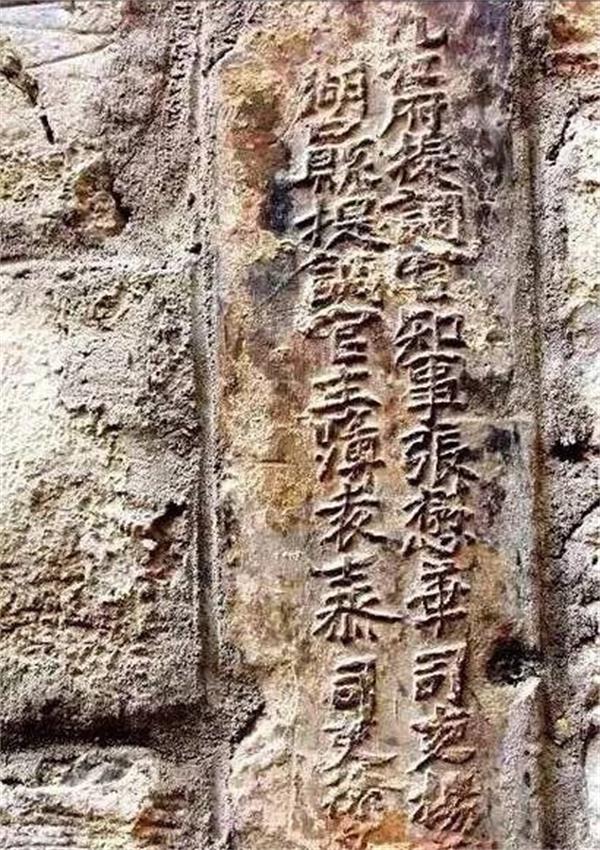 九江府提調官知事張懋華司吏楊
湖口縣提調官主簿袁泰司吏徐